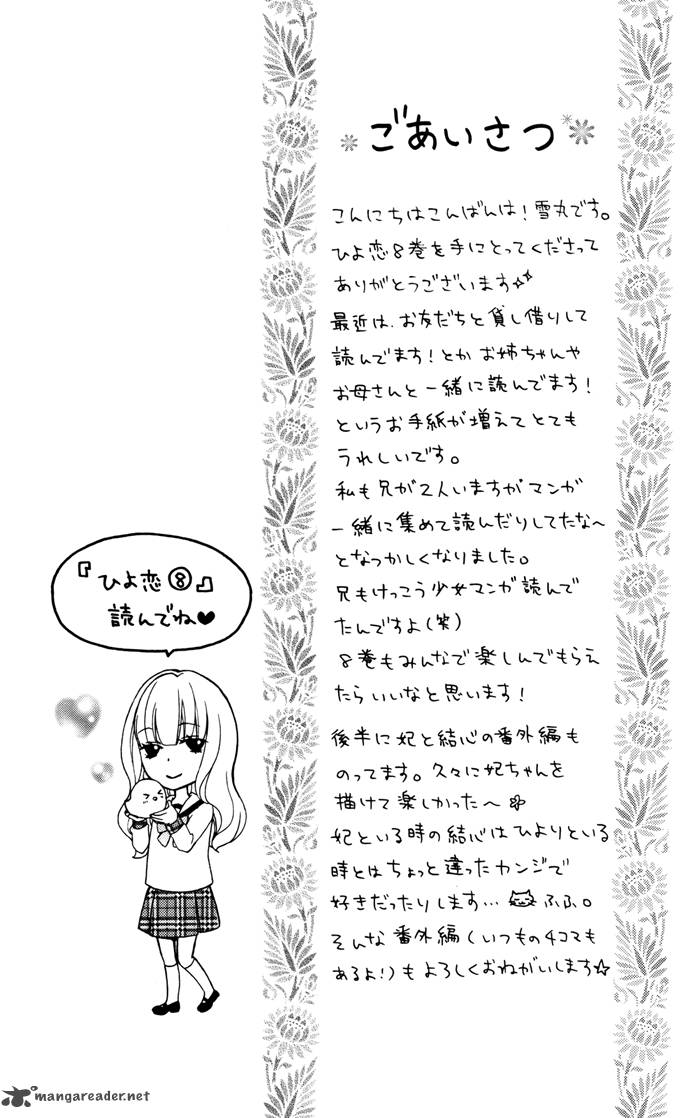 ごあいさつ
こんにちはこんばんは！雪丸です。
ひよ恋8巻を手にとってくださって
ありがとうございます☆
最近は、お友だちと貸し借りして
読んでます！とか お姉ちゃんや
お母さんと一緒に読んでます！
というお手紙が増えてとても
うれしいです。
私も兄が2人いますがマンガ
一緒に集めて読んだりしてたな〜
となつかしくなりました。
兄もけっこう少女マンガ読んで
たんですよ(笑)
8巻もみんなで楽しんでもらえ
たらいいなと思います！
後半に妃と結心の番外編も
のってます。久々に妃ちゃんを
描けて楽しかった〜
妃といる時の結心はひよりといる
時とはちょっと違ったカンジで
好きだったりします… ふふ。
そんな番外編(いつもの4コマも
あるよ！)もよろしくおねがいします☆
『ひよ恋⑧』
読んでね♥
mangareader.net